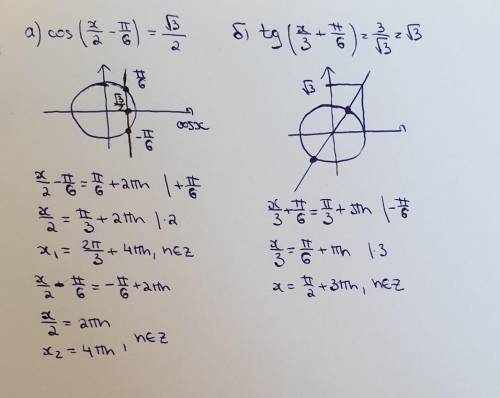 а) cos(x/2 - π/6) = √3/2
π/6
√3/2
cosx
-π/6
x/2 - π/6 = π/6 + 2πn | +π/6
x/2 = π/3 + 2πn | ·2
x₁ = 2π/3 + 4πn, n∈Z
x/2 - π/6 = -π/6 + 2πn
x/2 = 2πn
x₂ = 4πn, n∈Z
б) tg(x/3 + π/6) = 3/√3 = √3
√3
x/3 + π/6 = π/3 + πn | -π/6
x/3 = π/6 + πn | ·3
x = π/2 + 3πn, n∈Z